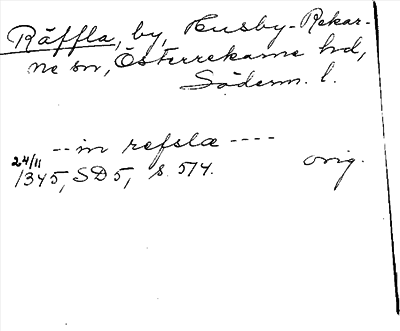 Räffla, by, Husby-Rekar-
ne sn, Österrekarne hd,
Söderm. l.
--in refslæ ----
24/11
1345, SD 5, s. 574. orig.